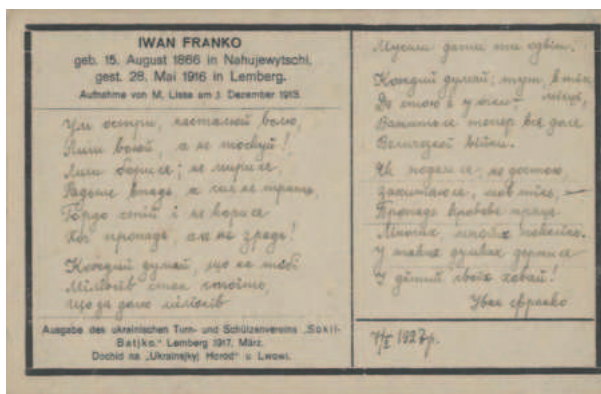 IWAN FRANKO
geb. 15. August 1866 in Nahujewytschi,
gest. 28. Mai 1916 in Lemberg.
Aufnahme von M. Lissa am 1. Dezember 1913.
Ум остри, насталюй волю,
Лиш воюй, а не тоскуй!
Лиш борися; не мирися,
Радше впадь, а сил не трать,
Гордо стій і не корися
Хоч пропадь, ак не зрадь!
Кождий думай, що на тобі
Міліонів стан стоїть,
Що за долю міліонів
Ausgabe des ukrainischen Turn- und Schützenvereins „Sokil-
Batjko.“ Lemberg 1917. März.
Dochid na „Ukrainśkyj Horod“ u Lwowi.
Мусиш дати ти одвіт.
Кождий думай; тут, в тім місці,
Де стою я у огні,
Важиться тепер вся доля
Величезної війни.
Як подамся; не достою,
Захитаюся, мов тінь, —
Пропаде кровава праця
Многих, многих поколінь.
У таких думках держися
І дітий своїх ховай!
Іван Франко
1927р.